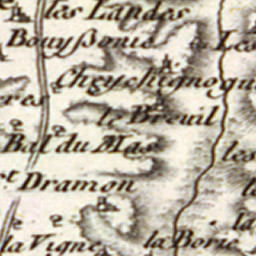 les Landes
Bouyssonie
Les
Cheyssignoque
res
le Breuil
Bal du Mas
les
t Dramon
la
la Vigne
la Borie